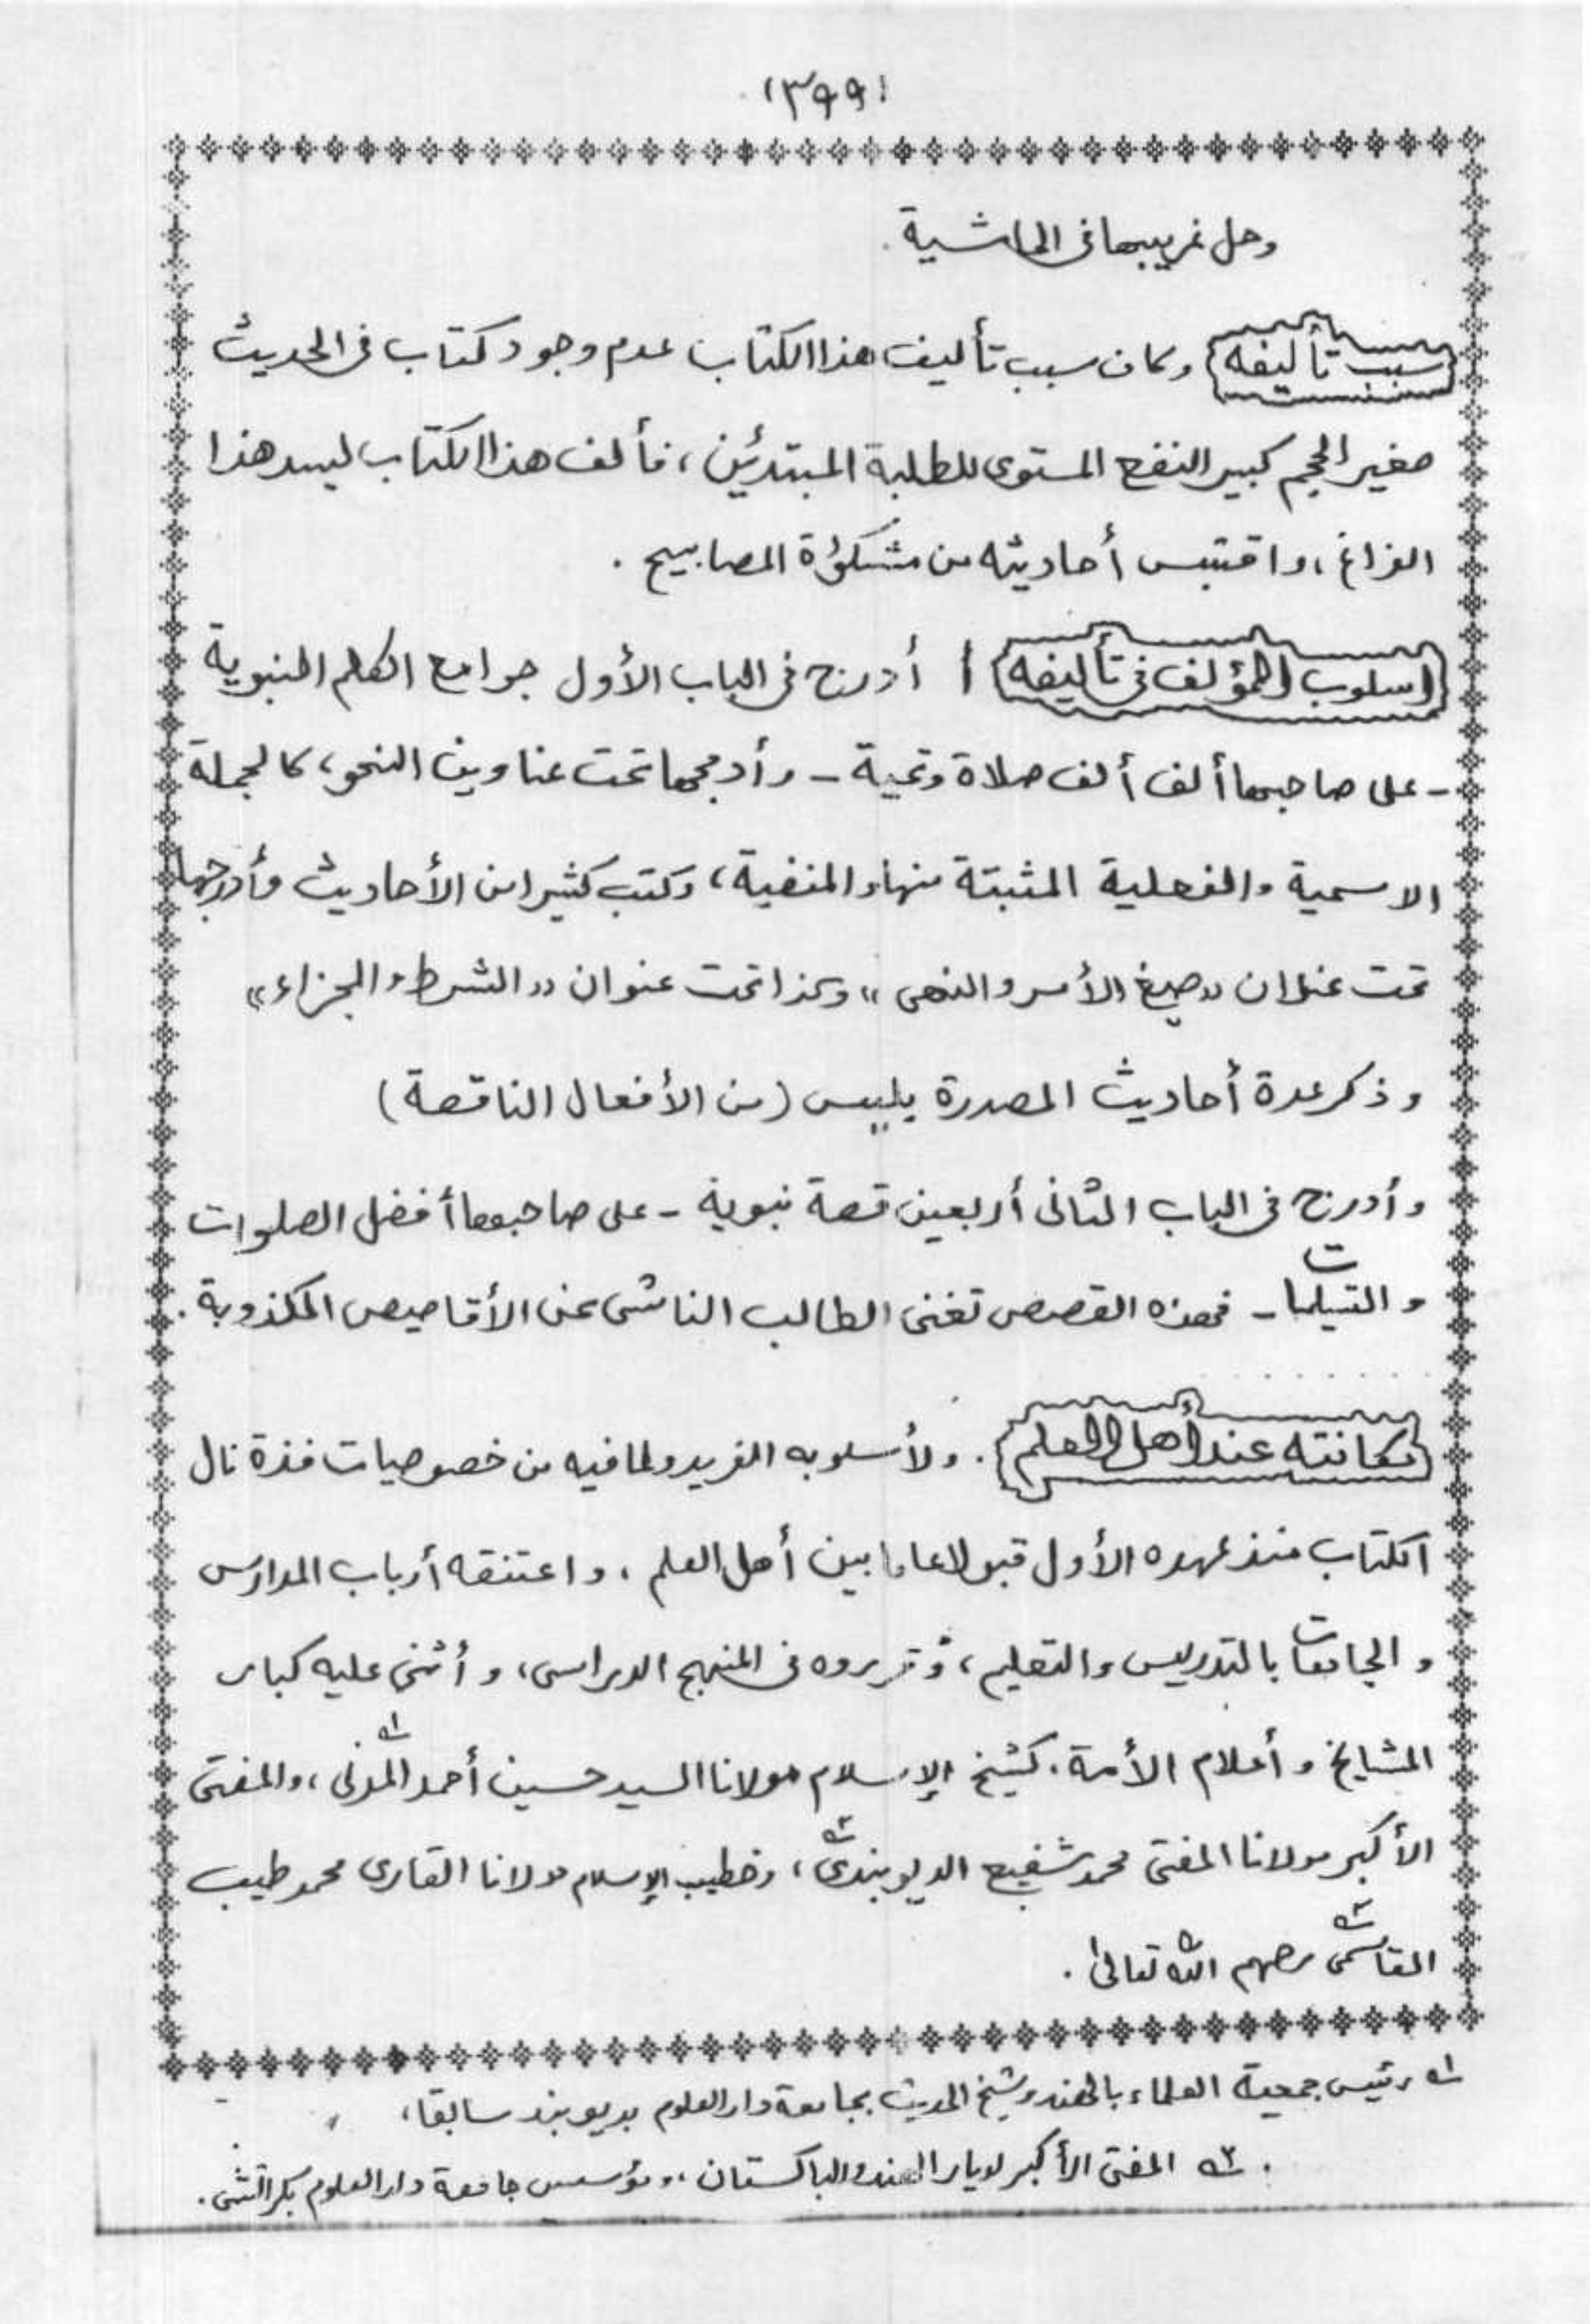 (٣٩٩)
وحل غريبها فى الحاشية.
سبب تأليفه وكان سبب تأليف هذا الكتاب عدم وجود كتاب فى الحديث
صغير الحجم كبير النفع المستوى للطلبة المبتدئين، فألف هذا الكتاب ليسد هذا
الفراغ، واقتبس أحاديثه من مشكوٰة المصابيح.
اسلوب المؤلف فى تأليفه أدرج فى الباب الأول جوامع الكلم النبوية
- على صاحبها ألف ألف صلاة وتحية - وأدمجها تحت عناوين النحو، كالجملة
الاسمية والفعلية المثبتة منها والمنفية، وكتب كثيرا من الأحاديث وأدرجها
تحت عنوان «صيغ الأمر والنهى» وكذا تحت عنوان «الشرط والجزاء»
وذكر عدة أحاديث المصدرة بليس (من الأفعال الناقصة)
وأدرج فى الباب الثانى أربعين قصة نبوية - على صاحبها أفضل الصلوات
والتسليمات - فهذه القصص تغنى الطالب الناشى عن الأقاصيص المكذوبة.
مكانته عند أهل العلم. ولأسلوبه الفريد ولما فيه من خصوصيات فذة نال
الكتاب منذ عهده الأول قبولا عاما بين أهل العلم، واعتنقه أرباب المدارس
والجامعات بالتدريس والتعليم، وقرروه فى المنهج الدراسى، وأثنى عليه كبار
المشايخ وأعلام الأمة. كشيخ الإسلام مولانا السيد حسين أحمد المدنى١، والمفتى
الأكبر مولانا المفتى محمد شفيع الديوبندى٢، وخطيب الإسلام مولانا القارى محمد طيب
القاسمى٣ رحمهم الله تعالىٰ.
١ رئيس جمعية العلماء بالهند وشيخ الحديث بجامعة دار العلوم بديوبند سابقا،
٢ المفتى الأكبر لديار الهند والباكستان، ومؤسس جامعة دار العلوم بكراتشى.